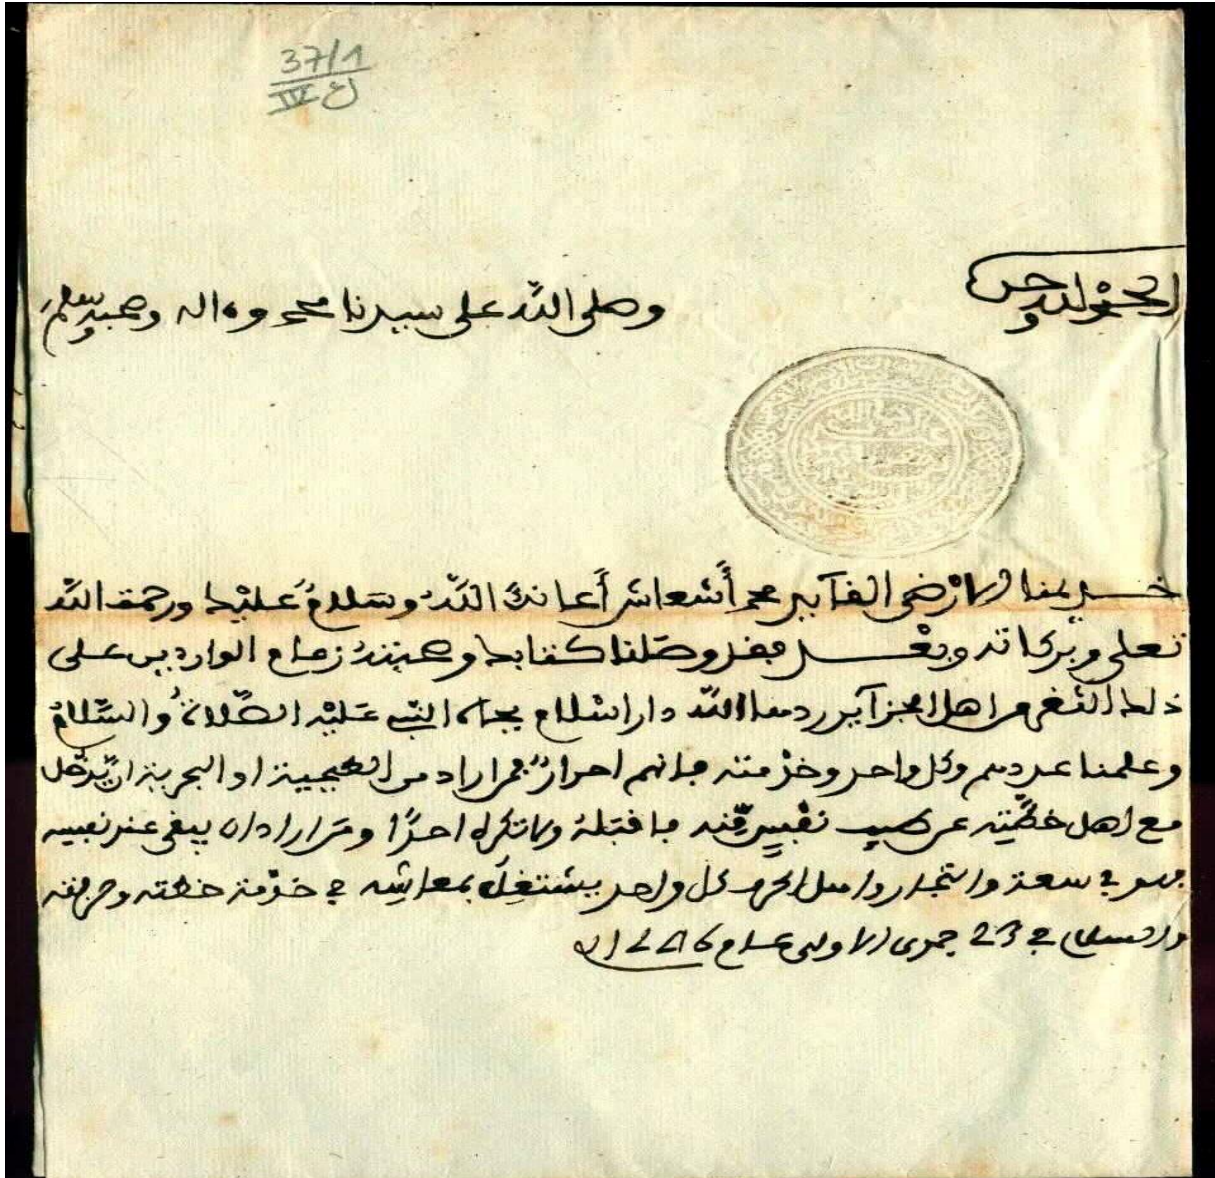 37/1
IV ع
الحمد لله وحده
وصلى الله على سيدنا محمد وءاله وصحبه وسلم
خديمنا الارضى القائد محمد أشعاش أعانك الله وسلام عليك ورحمت الله
تعلى وبركاته وبعد فقد وصلنا كتابك وصحبته زمام الواردين على
ذلك الثغر من اهل الجزائر ردها الله دار اسلام بجاه النبي عليه الصلاة والسلام
وعلمنا عددهم وكل واحد وخدمته فانهم احرار فمن اراد من الطبجية او البحرية ان يدخل
مع اهل خطته عن طيب نفس منه فاقبله ولا تكره احدا ومن اراد ان يبقى عند نفسه
فهو في سعة والتجار واهل الحرف كل واحد يشتغل بمعاشه في خدمة خطته وحرفته
والسلام في 23 جمدى الاولى عام 1246